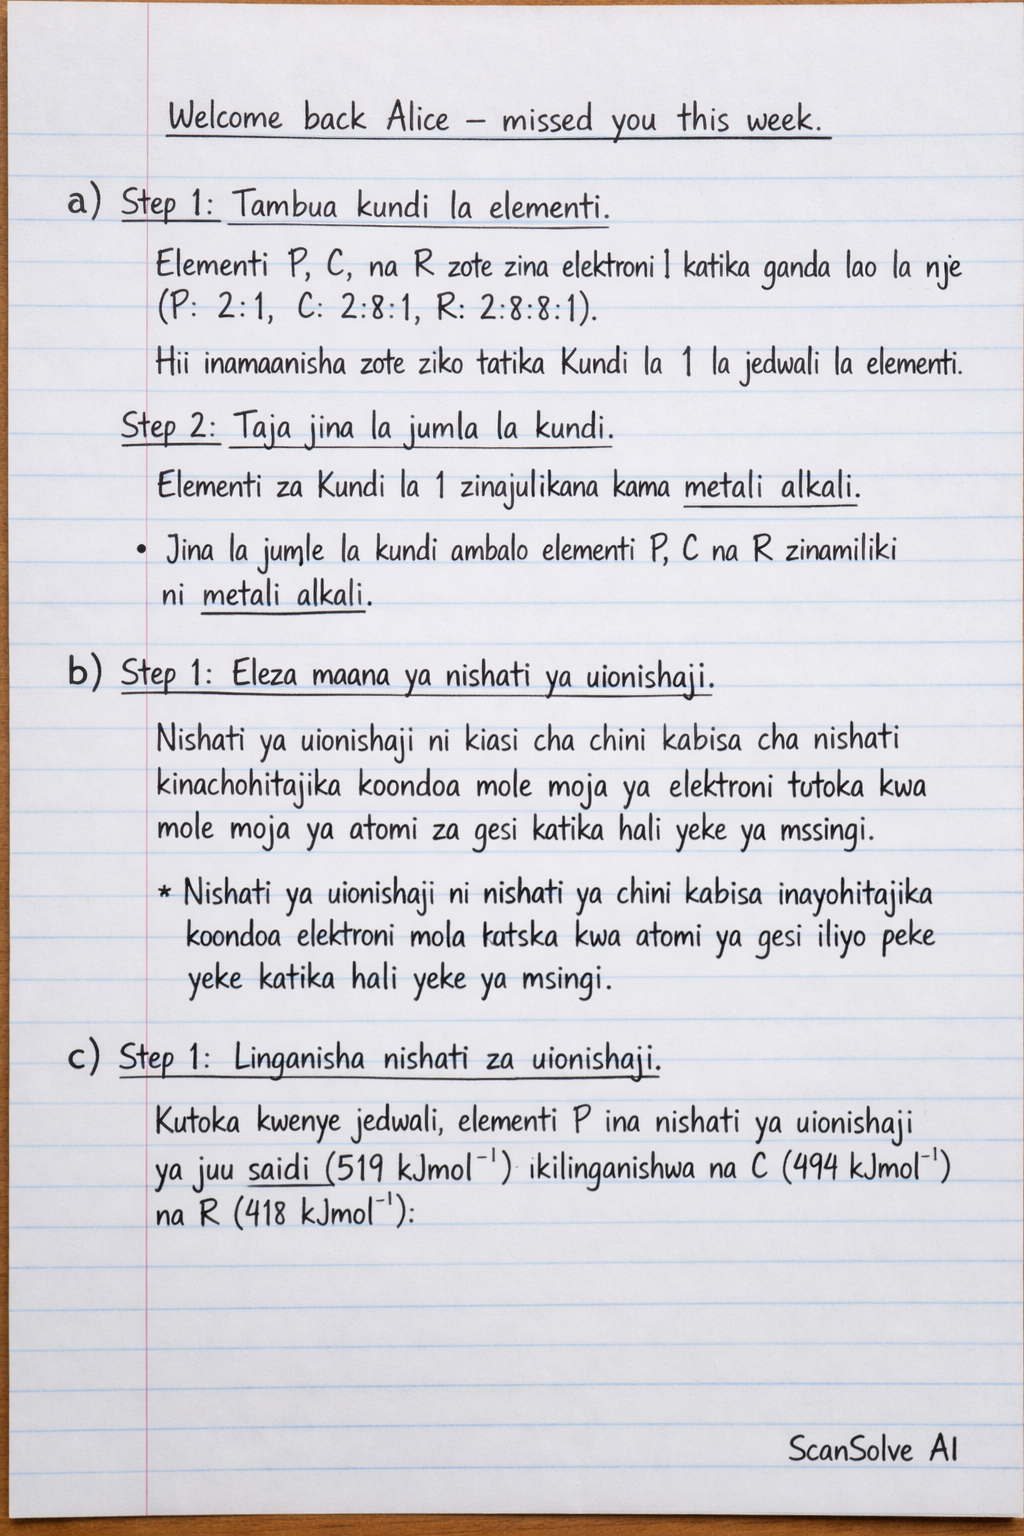 Welcome back Alice – missed you this week.
a) Step 1: Tambua kundi la elementi.
Elementi P, C, na R zote zina elektroni 1 katika ganda lao la nje
(P: 2:1, C: 2:8:1, R: 2:8:8:1).
Hii inamaanisha zote ziko tatika Kundi la 1 la jedwali la elementi.
Step 2: Taja jina la jumla la kundi.
Elementi za Kundi la 1 zinajulikana kama metali alkali.
• Jina la jumle la kundi ambalo elementi P, C na R zinamiliki
ni metali alkali.
b) Step 1: Eleza maana ya nishati ya uionishaji.
Nishati ya uionishaji ni kiasi cha chini kabisa cha nishati
kinachohitajika koondoa mole moja ya elektroni tutoka kwa
mole moja ya atomi za gesi katika hali yeke ya mssingi.
* Nishati ya uionishaji ni nishati ya chini kabisa inayohitajika
koondoa elektroni mola katska kwa atomi ya gesi iliyo peke
yeke katika hali yeke ya msingi.
c) Step 1: Linganisha nishati za uionishaji.
Kutoka kwenye jedwali, elementi P ina nishati ya uionishaji
ya juu saidi (519 kJmol⁻¹) ikilinganishwa na C (494 kJmol⁻¹)
na R (418 kJmol⁻¹):
ScanSolve AI